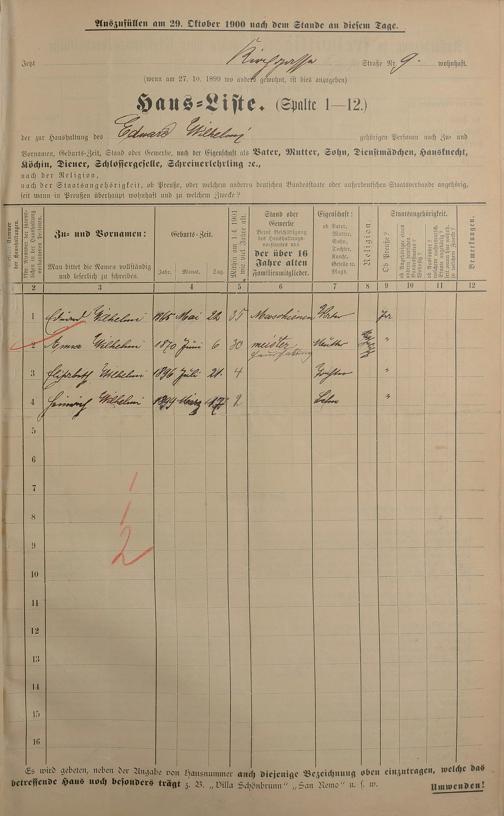 Auszufüllen am 29. Oktober 1900 nach dem Stande an diesem Tage.
Jetzt Kirchgasse Straße Nr. 9. wohnhaft.
(wenn am 27. 10. 1899 wo anders gewohnt, ist dies anzugeben)
Haus-Liste. (Spalte 1—12.)
der zur Haushaltung des Eduard Wilhelmi gehörigen Personen nach Zu- und
Vornamen, Geburts-Zeit, Stand oder Gewerbe, nach der Eigenschaft als Vater, Mutter, Sohn, Dienstmädchen, Hausknecht,
Köchin, Diener, Schlossergeselle, Schreinerlehrling ꝛc.,
nach der Religion,
nach der Staatsangehörigkeit, ob Preuße, oder welchem anderen deutschen Bundesstaate oder außerdeutschen Staatsverbande angehörig,
seit wann in Preußen überhaupt wohnhaft und zu welchem Zwecke?
Zu- und Vornamen:
Man bittet die Namen vollständig
und leserlich zu schreiben.
Geburts-Zeit.
Jahr. Monat. Tag.
Mithin am 1. 4. 1901
wie viel Jahre alt.
Stand oder
Gewerbe
der über 16
Jahre alten
Familienmitglieder.
Eigenschaft:
ob Vater,
Mutter,
Sohn,
Tochter,
Knecht,
Geselle u.
Magd.
Religion
Staatsangehörigkeit.
Ob Preuße?
Bemerkungen.
2 3 4 5 6 7 8 9 10 11 12
1 Eduard Wilhelmi 1865 Mai 22 35 Maschinen Vater Pr
2 Emma Wilhelmi 1870 Juni 6 30 meister Mutter "
Haushaltung
3 Elisabeth Wilhelmi 1896 Juli 21 4 Tochter "
4 Heinrich Wilhelmi 1899 März 17 2 Sohn "
5
6
7
8
9
10
11
12
13
14
15
16
1
1
2
Es wird gebeten, neben der Angabe von Hausnummer auch diejenige Bezeichnung oben einzutragen, welche das
betreffende Haus noch besonders trägt z. B. „Villa Schönbrunn" „San Remo" u. s. w. Umwenden!